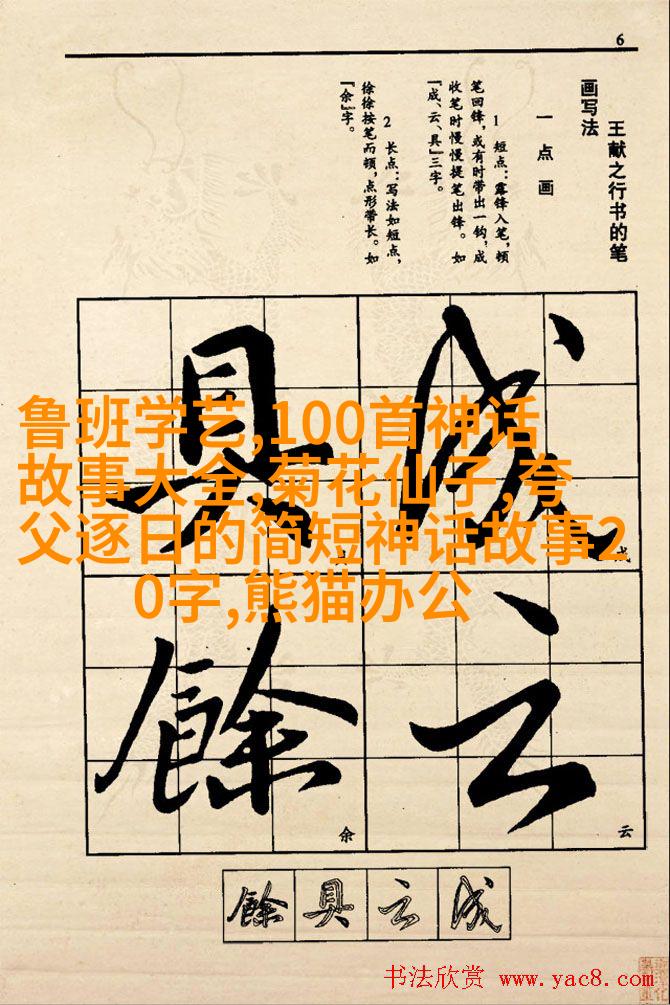 6
王献之行书的笔
画写法
一点画
1 短点：露锋入笔，顿
笔回锋，或有时带出一钩，成
收笔时慢慢提笔出锋。如
「成、云、具」三字。
2 长点：写法如短点，
徐徐按笔而顿，点形带长。如
「余」字。
成
成
云
云
具
餘
余
鲁班学艺,100首神话
故事大全,菊花仙子,夸
父逐日的简短神话故事2
0字,熊猫办公
餘 具 云 成
书法欣赏 www.yac8.com